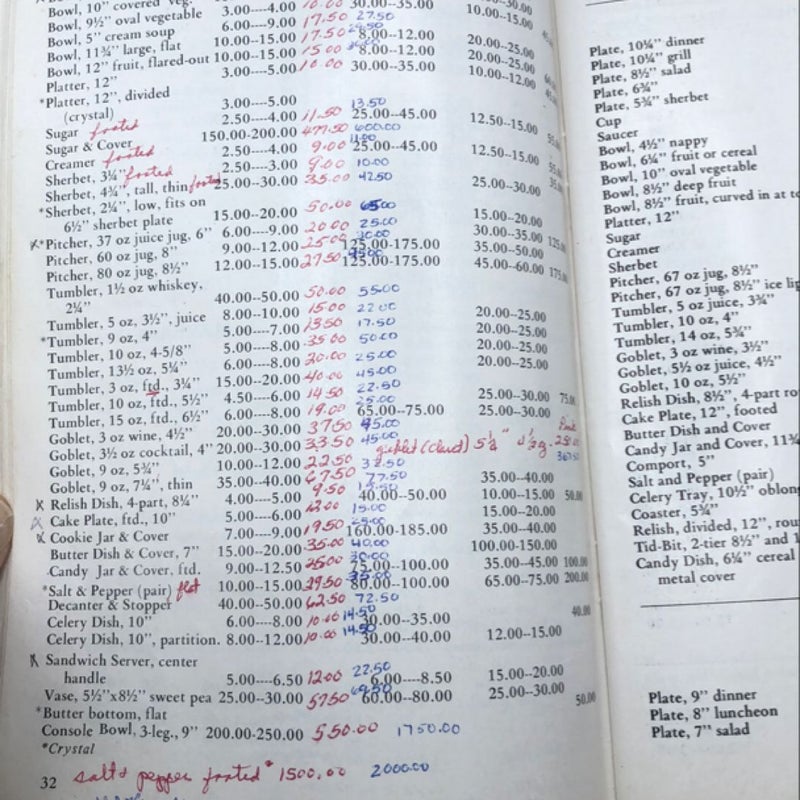 Bowl, 10" covered veg. 3.00----4.00 10.00 30.00--35.00
Bowl, 9½" oval vegetable 6.00----9.00 17.50 27.50 10.00--15.00
Bowl, 5" cream soup 10.00--15.00 17.50 8.00--12.00
Bowl, 11¾" large, flat 10.00--15.00 15.00 8.00--12.00 20.00--25.00
Bowl, 12" fruit, flared-out 3.00----5.00 10.00 30.00--35.00 20.00--25.00
Platter, 12" 10.00--12.00
*Platter, 12", divided
(crystal) 3.00----5.00 13.50
Sugar footed 2.50----4.00 11.50 25.00--45.00 12.50--15.00
Sugar & Cover 150.00-200.00 477.50 600.00
Creamer footed 2.50----4.00 9.00 11.00 25.00--45.00 12.50--15.00
Sherbet, 3¼" footed 2.50----3.00 9.00 10.00
Sherbet, 4¾", tall, thin footed 25.00--30.00 35.00 42.50 25.00--30.00
*Sherbet, 2¼", low, fits on
6½" sherbet plate 15.00--20.00 50.00 65.00 15.00--20.00
X*Pitcher, 37 oz juice jug, 6" 6.00----9.00 20.00 25.00 30.00--35.00
Pitcher, 60 oz jug, 8" 9.00--12.00 25.00 30.00 125.00-175.00 35.00--50.00 125.
Pitcher, 80 oz jug, 8½" 12.00--15.00 27.50 125.00-175.00 45.00--60.00 175.
Tumbler, 1½ oz whiskey,
2¼" 40.00--50.00 50.00 55.00
Tumbler, 5 oz, 3½", juice 8.00--10.00 15.00 22.00 20.00--25.00
*Tumbler, 9 oz, 4" 5.00----7.00 13.50 17.50 20.00--25.00
Tumbler, 10 oz, 4-5/8" 5.00----8.00 35.00 50.00 20.00--25.00
Tumbler, 13½ oz, 5¼" 6.00----8.00 20.00 25.00 20.00--25.00
Tumbler, 3 oz, ftd., 3¼" 15.00--20.00 40.00 45.00
Tumbler, 10 oz, ftd., 5½" 4.50----6.00 14.50 22.50 25.00--30.00 75.
Tumbler, 15 oz, ftd., 6½" 6.00----8.00 19.00 25.00 65.00--75.00 25.00--30.00
Goblet, 3 oz wine, 4½" 20.00--30.00 37.50 45.00 Pink
Goblet, 3½ oz cocktail, 4" 20.00--30.00 33.50 45.00 goblet (claret) 5¼"
Goblet, 9 oz, 5¾" 10.00--12.00 22.50 32.50 367.50
Goblet, 9 oz, 7¼", thin 35.00--40.00 67.50 77.50 35.00--40.00
X Relish Dish, 4-part, 8¼" 4.00----5.00 9.50 40.00--50.00 10.00--15.00 50.00
X Cake Plate, ftd., 10" 5.00----6.00 12.00 15.00 15.00--20.00
X Cookie Jar & Cover 7.00----9.00 19.50 25.00 160.00-185.00 35.00--40.00
Butter Dish & Cover, 7" 15.00--20.00 35.00 40.00 100.00-150.00
Candy Jar & Cover, ftd. 9.00--12.50 25.00 30.00 75.00--100.00 35.00--45.00 100.00
*Salt & Pepper (pair) flat 10.00--15.00 29.50 80.00--100.00 65.00--75.00 200.00
Decanter & Stopper 40.00--50.00 62.50 72.50
Celery Dish, 10" 6.00----8.00 10.00 14.50 30.00--35.00 40.00
Celery Dish, 10", partition. 8.00--12.00 10.00 14.50 30.00--40.00 12.00--15.00
X Sandwich Server, center
handle 5.00----6.50 12.00 22.50 6.00----8.50 15.00--20.00
Vase, 5½"x8½" sweet pea 25.00--30.00 57.50 60.00--80.00 25.00--30.00 50.00
*Butter bottom, flat
Console Bowl, 3-leg., 9" 200.00-250.00 550.00 1750.00
*Crystal
32 salt & pepper footed 1500.00 2000.00
Plate, 10¼" dinner
Plate, 10¼" grill
Plate, 8½" salad
Plate, 6¾"
Plate, 5¾" sherbet
Cup
Saucer
Bowl, 4½" nappy
Bowl, 6¼" fruit or cereal
Bowl, 10" oval vegetable
Bowl, 8½" deep fruit
Bowl, 8½" fruit, curved in at to
Platter, 12"
Sugar
Creamer
Sherbet
Pitcher, 67 oz jug, 8½"
Pitcher, 67 oz jug, 8½" ice lip
Tumbler, 5 oz juice, 3¾"
Tumbler, 10 oz, 4"
Tumbler, 14 oz, 5¾"
Goblet, 3 oz wine, 3½"
Goblet, 5½ oz juice, 4½"
Goblet, 10 oz, 5½"
Relish Dish, 8½", 4-part ro
Cake Plate, 12", footed
Butter Dish and Cover
Candy Jar and Cover, 11¾
Comport, 5"
Salt and Pepper (pair)
Celery Tray, 10½" oblong
Coaster, 5¾"
Relish, divided, 12", rou
Tid-Bit, 2-tier 8½" and 1
Candy Dish, 6¼" cereal
metal cover
Plate, 9" dinner
Plate, 8" luncheon
Plate, 7" salad